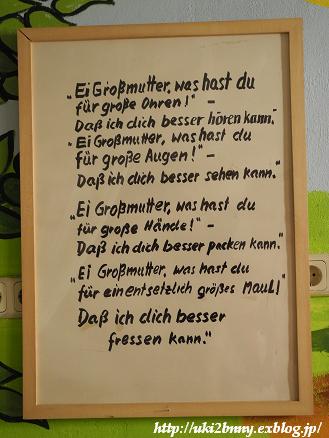 „Ei Großmutter, was hast du
für große Ohren!" –
Daß ich dich besser hören kann."
„Ei Großmutter, was hast du
für große Augen!" –
Daß ich dich besser sehen kann."
„Ei Großmutter, was hast du
für große Hände!" –
Daß ich dich besser packen kann."
„Ei Großmutter, was hast du
für ein entsetzlich größes Maul!"
Daß ich dich besser
fressen kann."
http://uki2bnny.exblog.jp/